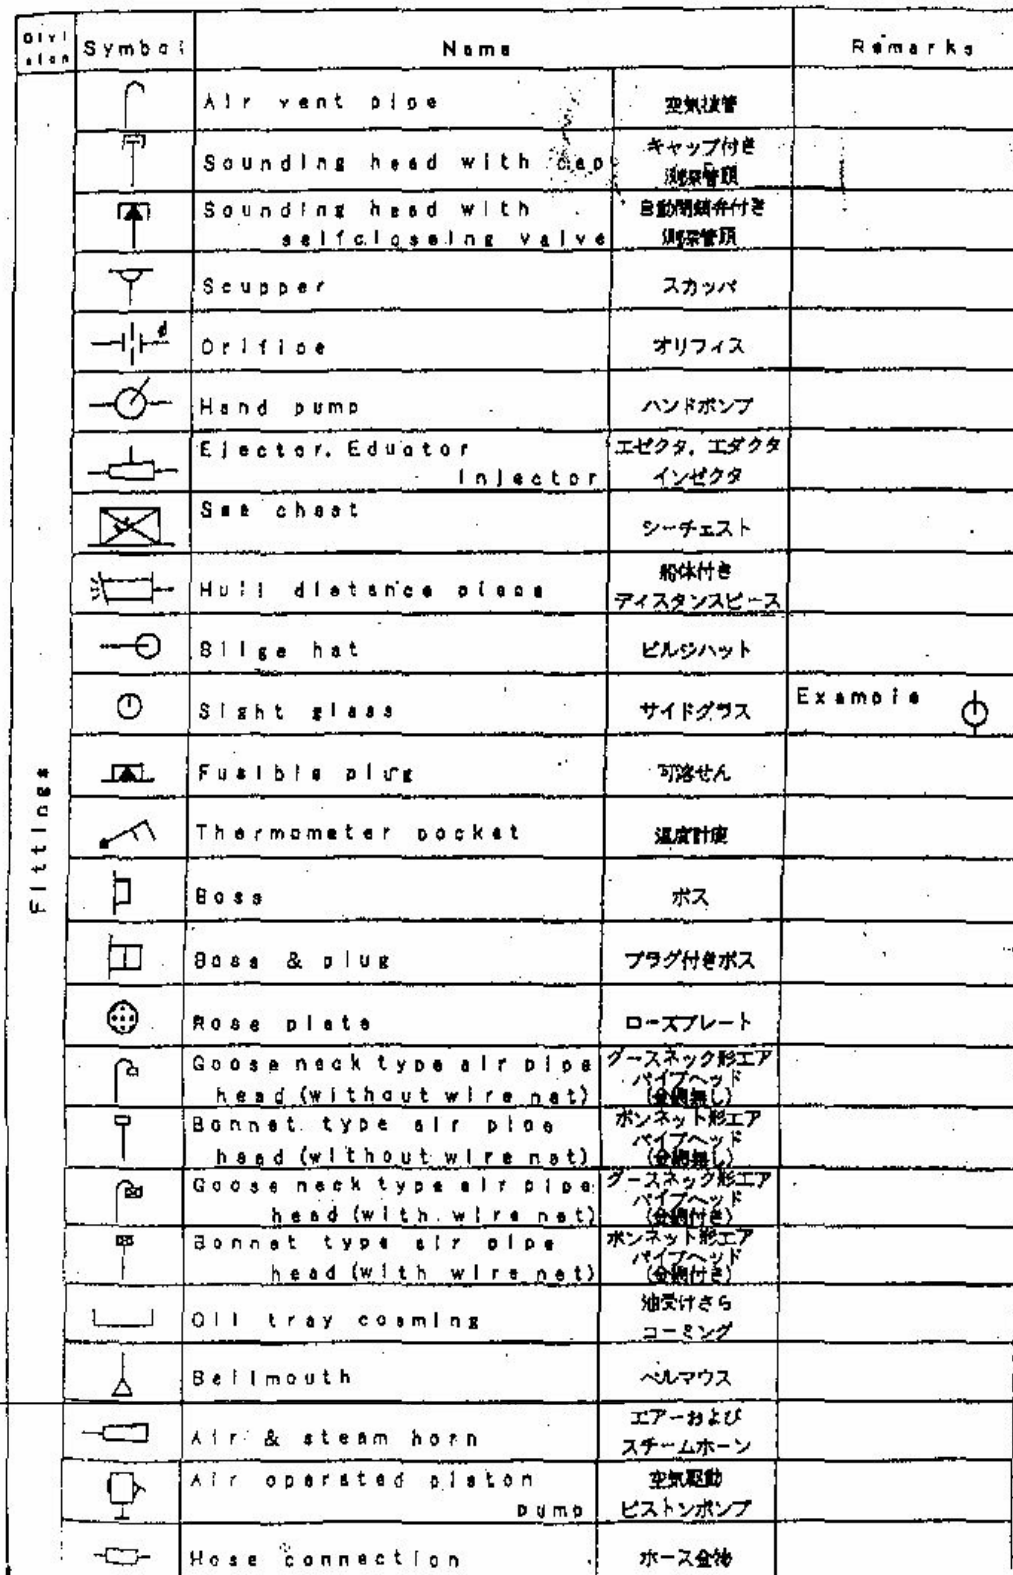 Divi
sion
Symbol
Name
Remarks
Fittings
Air vent pipe
空気抜管
Sounding head with cap
キャップ付き
測深管頭
Sounding head with
selfcloseing valve
自動閉鎖弁付き
測深管頭
Scupper
スカッパ
d
Orifice
オリフィス
Hand pump
ハンドポンプ
Ejector. Eductor
Injector
エゼクタ, エダクタ
インゼクタ
Sea chest
シーチェスト
Hull distance piece
船体付き
ディスタンスピース
Bilge hat
ビルジハット
Sight glass
サイドグラス
Example
Fusible plug
可溶せん
Thermometer pocket
温度計座
Boss
ボス
Boss & plug
プラグ付きボス
Rose plate
ローズプレート
Goose neck type air pipe
head (without wire net)
グースネック形エア
パイプヘッド
(金網無し)
Bonnet type air pipe
head (without wire net)
ボンネット形エア
パイプヘッド
(金網無し)
Goose neck type air pipe
head (with wire net)
グースネック形エア
パイプヘッド
(金網付き)
Bonnet type air pipe
head (with wire net)
ボンネット形エア
パイプヘッド
(金網付き)
Oil tray coaming
油受けさら
コーミング
Bellmouth
ベルマウス
Air & steam horn
エアーおよび
スチームホーン
Air operated piston
pump
空気駆動
ピストンポンプ
Hose connection
ホース金物